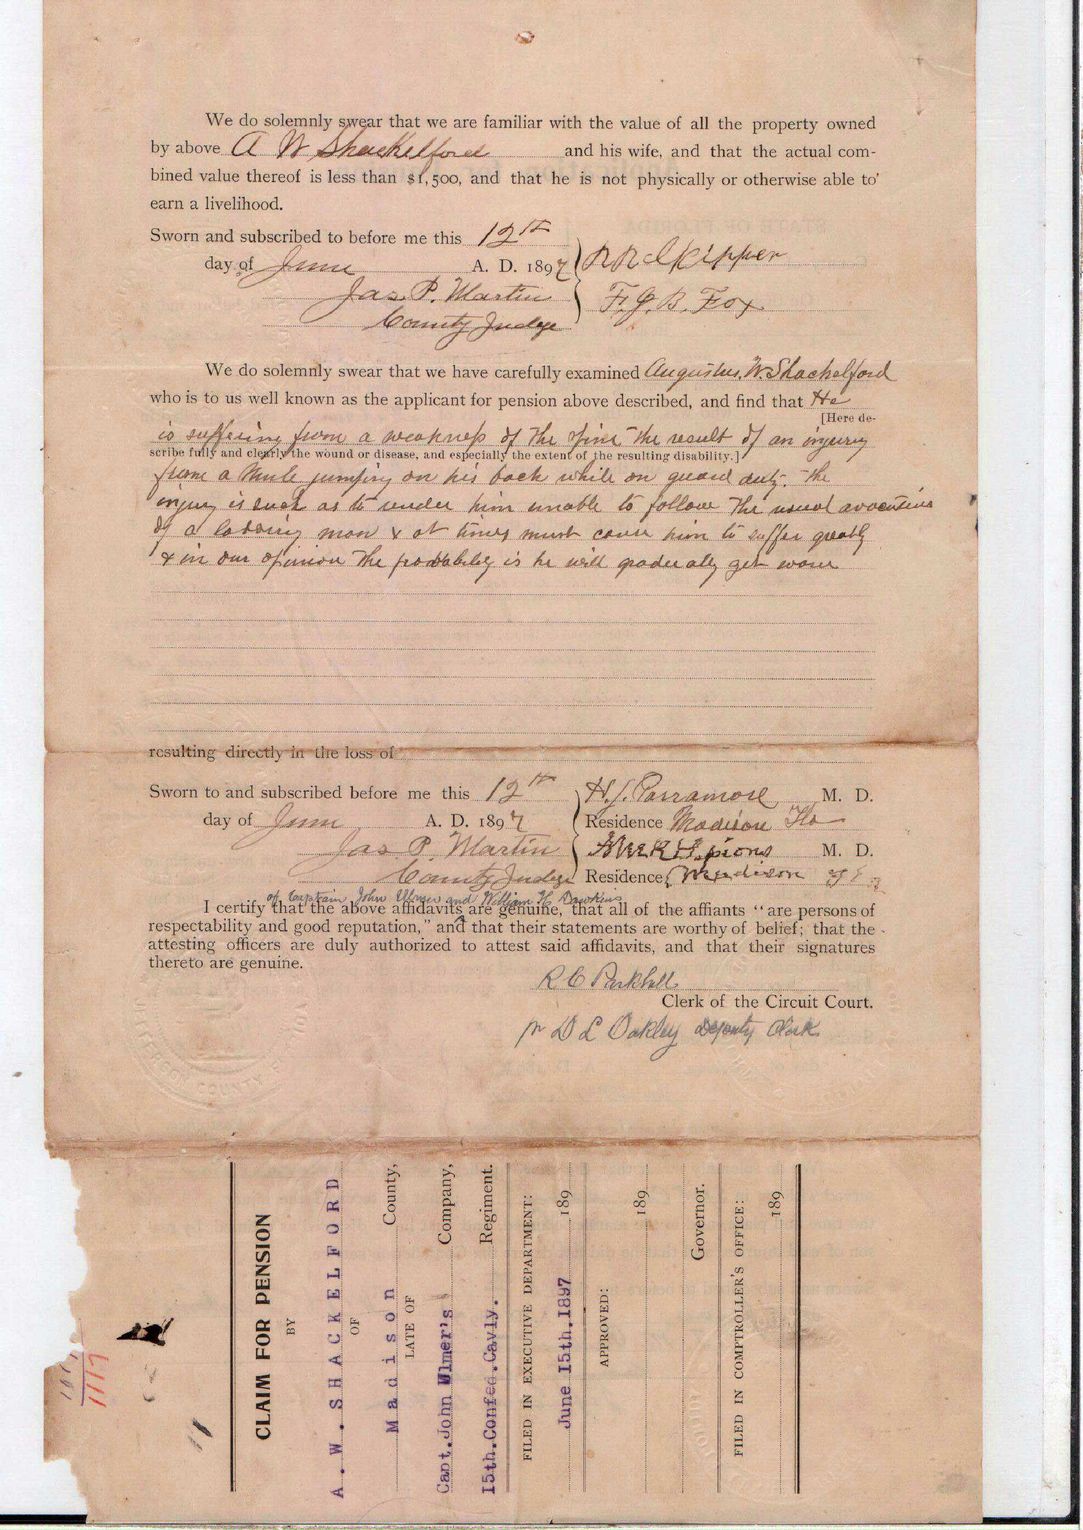 We do solemnly swear that we are familiar with the value of all the property owned
by above A W Shackelford and his wife, and that the actual com-
bined value thereof is less than $1,500, and that he is not physically or otherwise able to
earn a livelihood.
Sworn and subscribed to before me this 12th
day of June A. D. 1897
R R Skipper
Jas. P. Martin
F. J. B. Fox
County Judge
We do solemnly swear that we have carefully examined Augustus. W. Shackelford
who is to us well known as the applicant for pension above described, and find that He
[Here de-
is suffering from a weakness of the spine the result of an injury
scribe fully and clearly the wound or disease, and especially the extent of the resulting disability.]
from a Mule jumping on his back while on guard duty. The
injury is such as to render him unable to follow the usual avocations
of a laboring man & at times must cause him to suffer greatly
& in our opinion the probability is he will gradually get worse
resulting directly in the loss of
Sworn to and subscribed before me this 12th
H. J. Parramore M. D.
day of June A. D. 1897
Residence Madison Fla
Jas P. Martin
M. D.
County Judge
Residence, Madison
of Captain John Ulmer and William H Dawkins
I certify that the above affidavits are genuine, that all of the affiants "are persons of
respectability and good reputation," and that their statements are worthy of belief; that the
attesting officers are duly authorized to attest said affidavits, and that their signatures
thereto are genuine.
R C Parkhill
Clerk of the Circuit Court.
pr D L Oakley Deputy Clerk
JEFFERSON COUNTY
CLAIM FOR PENSION
BY
A. W. SHACKELFORD
OF
Madison County,
LATE OF
Capt. John Ulmer's Company,
15th. Confed. Cavly. Regiment.
FILED IN EXECUTIVE DEPARTMENT:
June 15th. 1897 189
APPROVED:
189
Governor.
FILED IN COMPTROLLER'S OFFICE:
189
11